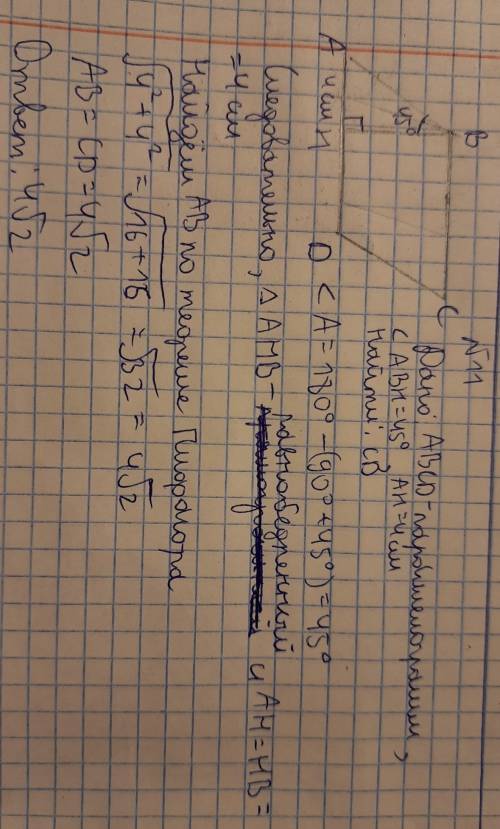 N11
Дано: ABCD-параллелограмм,
<ABH=45° AH=4см
Найти: CD
B
C
45°
A
4см
H
D
<A=180°-(90°+45°)=45°
Следовательно, △AHB- равнобедренный и AH=HB=
=4см
Найдём AB по теореме Пифагора
√4²+4² = √16+16 = √32 = 4√2
AB=CD=4√2
Ответ: 4√2